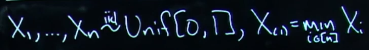 X₁,...,Xₙ iid~ Unif[0,1], X₍₁₎=min_{i∈[n]} Xᵢ